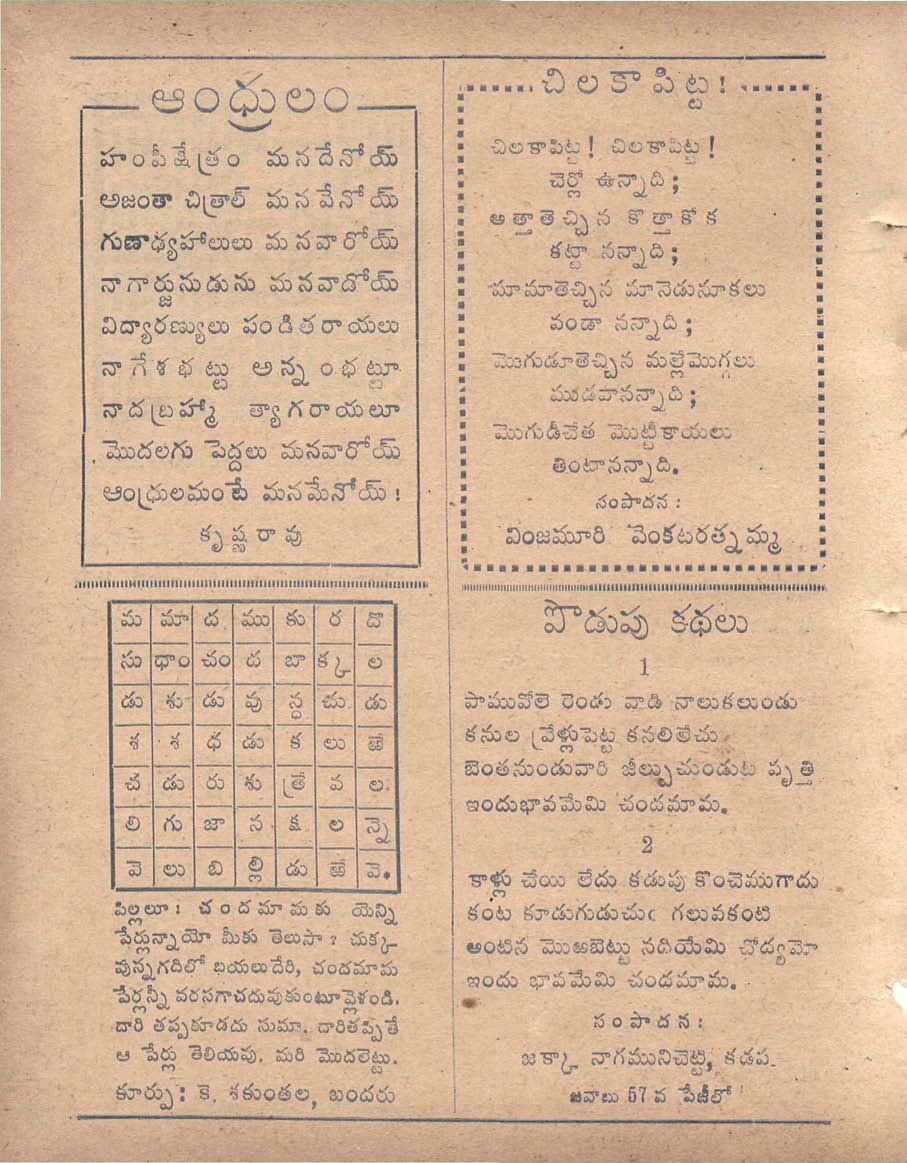 ఆంధ్రులం
హంపీక్షేత్రం మనదేనోయ్
అజంతా చిత్రాల్ మనవేనోయ్
గుణాఢ్యహాలులు మనవారోయ్
నాగార్జునుడును మనవాడోయ్
విద్యారణ్యులు పండితరాయలు
నాగేశభట్టు అన్నంభట్టూ
నాదబ్రహ్మా త్యాగరాయలూ
మొదలగు పెద్దలు మనవారోయ్
ఆంధ్రులమంటే మనమేనోయ్!
కృష్ణరావు
మ మా ద ము కు ర దొ
సు ధాం చం ద బా క్క ల
డు శు డు వు న్ధ చు డు
శ శ ధ డు క లు ఱే
చ డు రు శు త్రే వ ల
లి గు జా న క్ష ల న్నె
వె లు బి ల్లి డు ఱే వె.
పిల్లలూ! చందమామకు యెన్ని
పేర్లున్నాయో మీకు తెలుసా? చుక్క
వున్నగదిలో బయలుదేరి, చందమామ
పేర్లన్నీ వరసగాచదువుకుంటూవెళ్లండి.
దారి తప్పకూడదు సుమా. దారితప్పితే
ఆ పేర్లు తెలియవు. మరి మొదలెట్టు.
కూర్పు: కె. శకుంతల, బందరు
చిలకాపిట్ట!
చిలకాపిట్ట! చిలకాపిట్ట!
చెర్లో ఉన్నాది;
అత్తాతెచ్చిన కొత్తాకోక
కట్టా నన్నాది;
మామాతెచ్చిన మానెడునూకలు
వండా నన్నాది;
మొగుడూతెచ్చిన మల్లేమొగ్గలు
ముడవానన్నాది;
మొగుడీచేత మొట్టికాయలు
తింటానన్నాది.
సంపాదన:
వింజమూరి వెంకటరత్నమ్మ
పొడుపు కథలు
1
పామువోలె రెండు వాడి నాలుకలుండు
కనుల వ్రేళ్లుపెట్ట కనలిలేచు
బెంతనుండువారి జీల్చుచుండుట వృత్తి
ఇందుభావమేమి చందమామ.
2
కాళ్లు చేయి లేదు కడుపు కొంచెముగాదు
కంట కూడుగుడుచుఁ గలువకంటి
అంటిన మొఱబెట్టు నదియేమి చోద్యమో
ఇందు భావమేమి చందమామ.
సంపాదన:
జక్కా నాగమునిచెట్టి, కడప.
జవాబు 57 వ పేజీలో